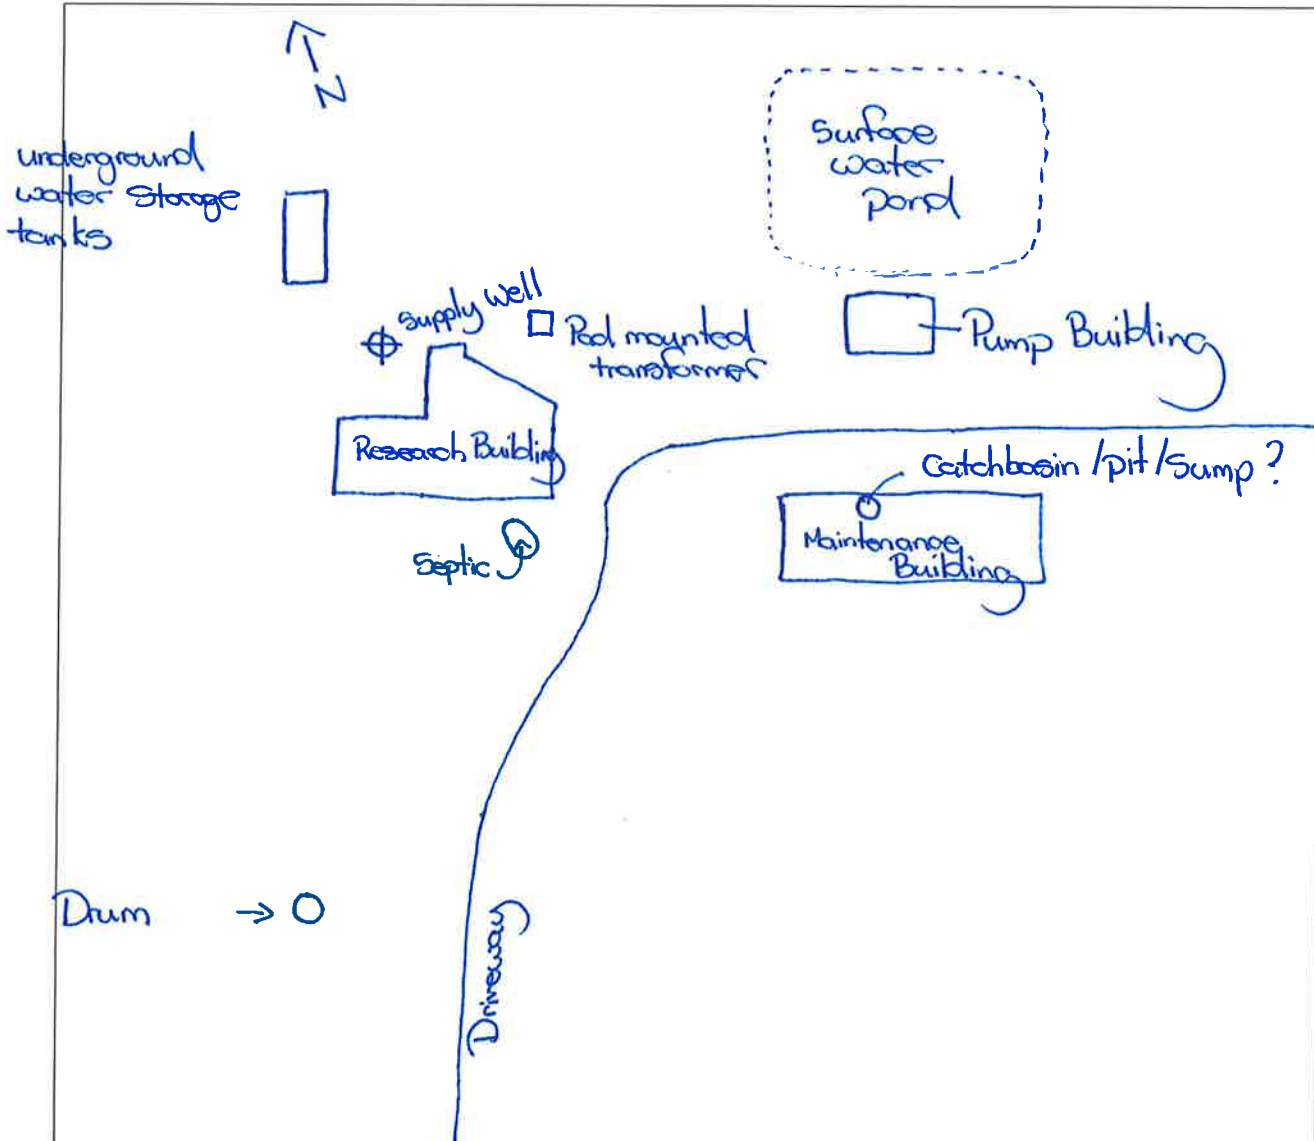 N
underground
water storage
tanks
Surface
water
pond
Supply Well
Pad mounted
transformer
Pump Building
Research Building
Catchbasin/pit/Sump?
Maintenance
Building
Septic
Drum
Driveway